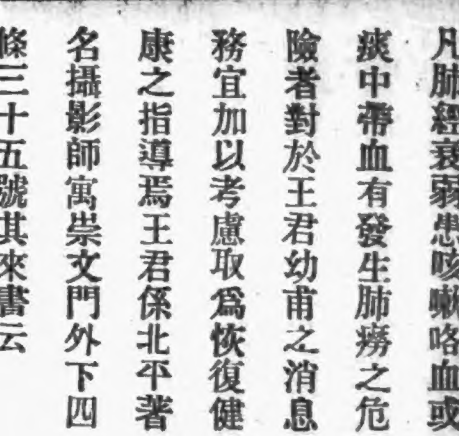 凡肺經衰弱患咳嗽咯血或
痰中帶血有發生肺癆之危
險者對於王君幼甫之消息
務宜加以考慮取爲恢復健
康之指導焉王君係北平著
名攝影師寓崇文門外下四
條三十五號其來書云